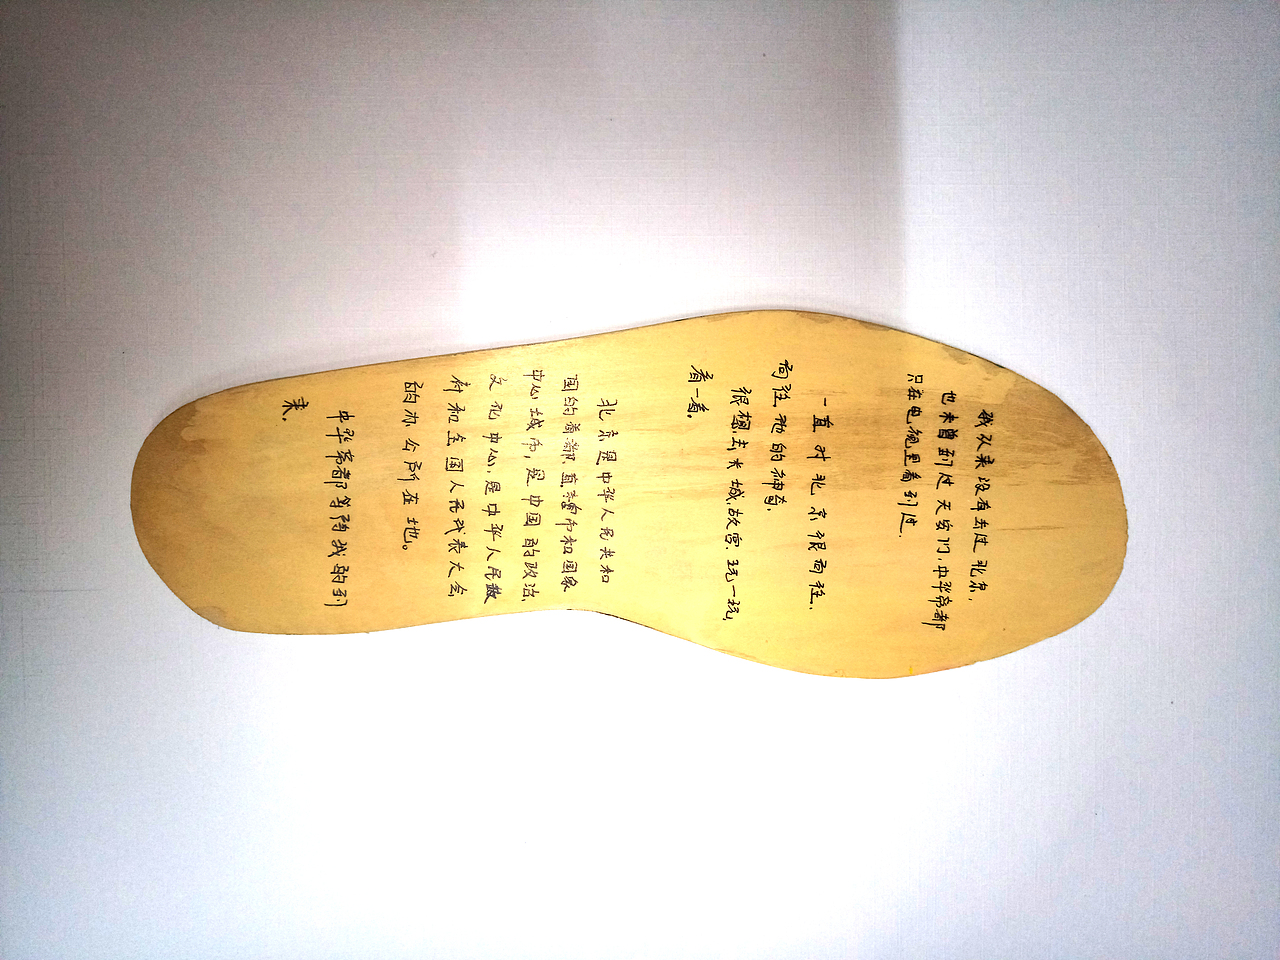 我从来没有去过北京,
也未曾到过天安门,中华帝都
只在电视里看到过.
一直对北京很向往.
向往她的神奇.
很想去长城,故宫.玩一玩,
看一看.
北京是中华人民共和
国的首都、直辖市和国家
中心城市,是中国的政治、
文化中心,是中华人民政
府和全国人民代表大会
的办公所在地。
中华帝都等待我的到
来.